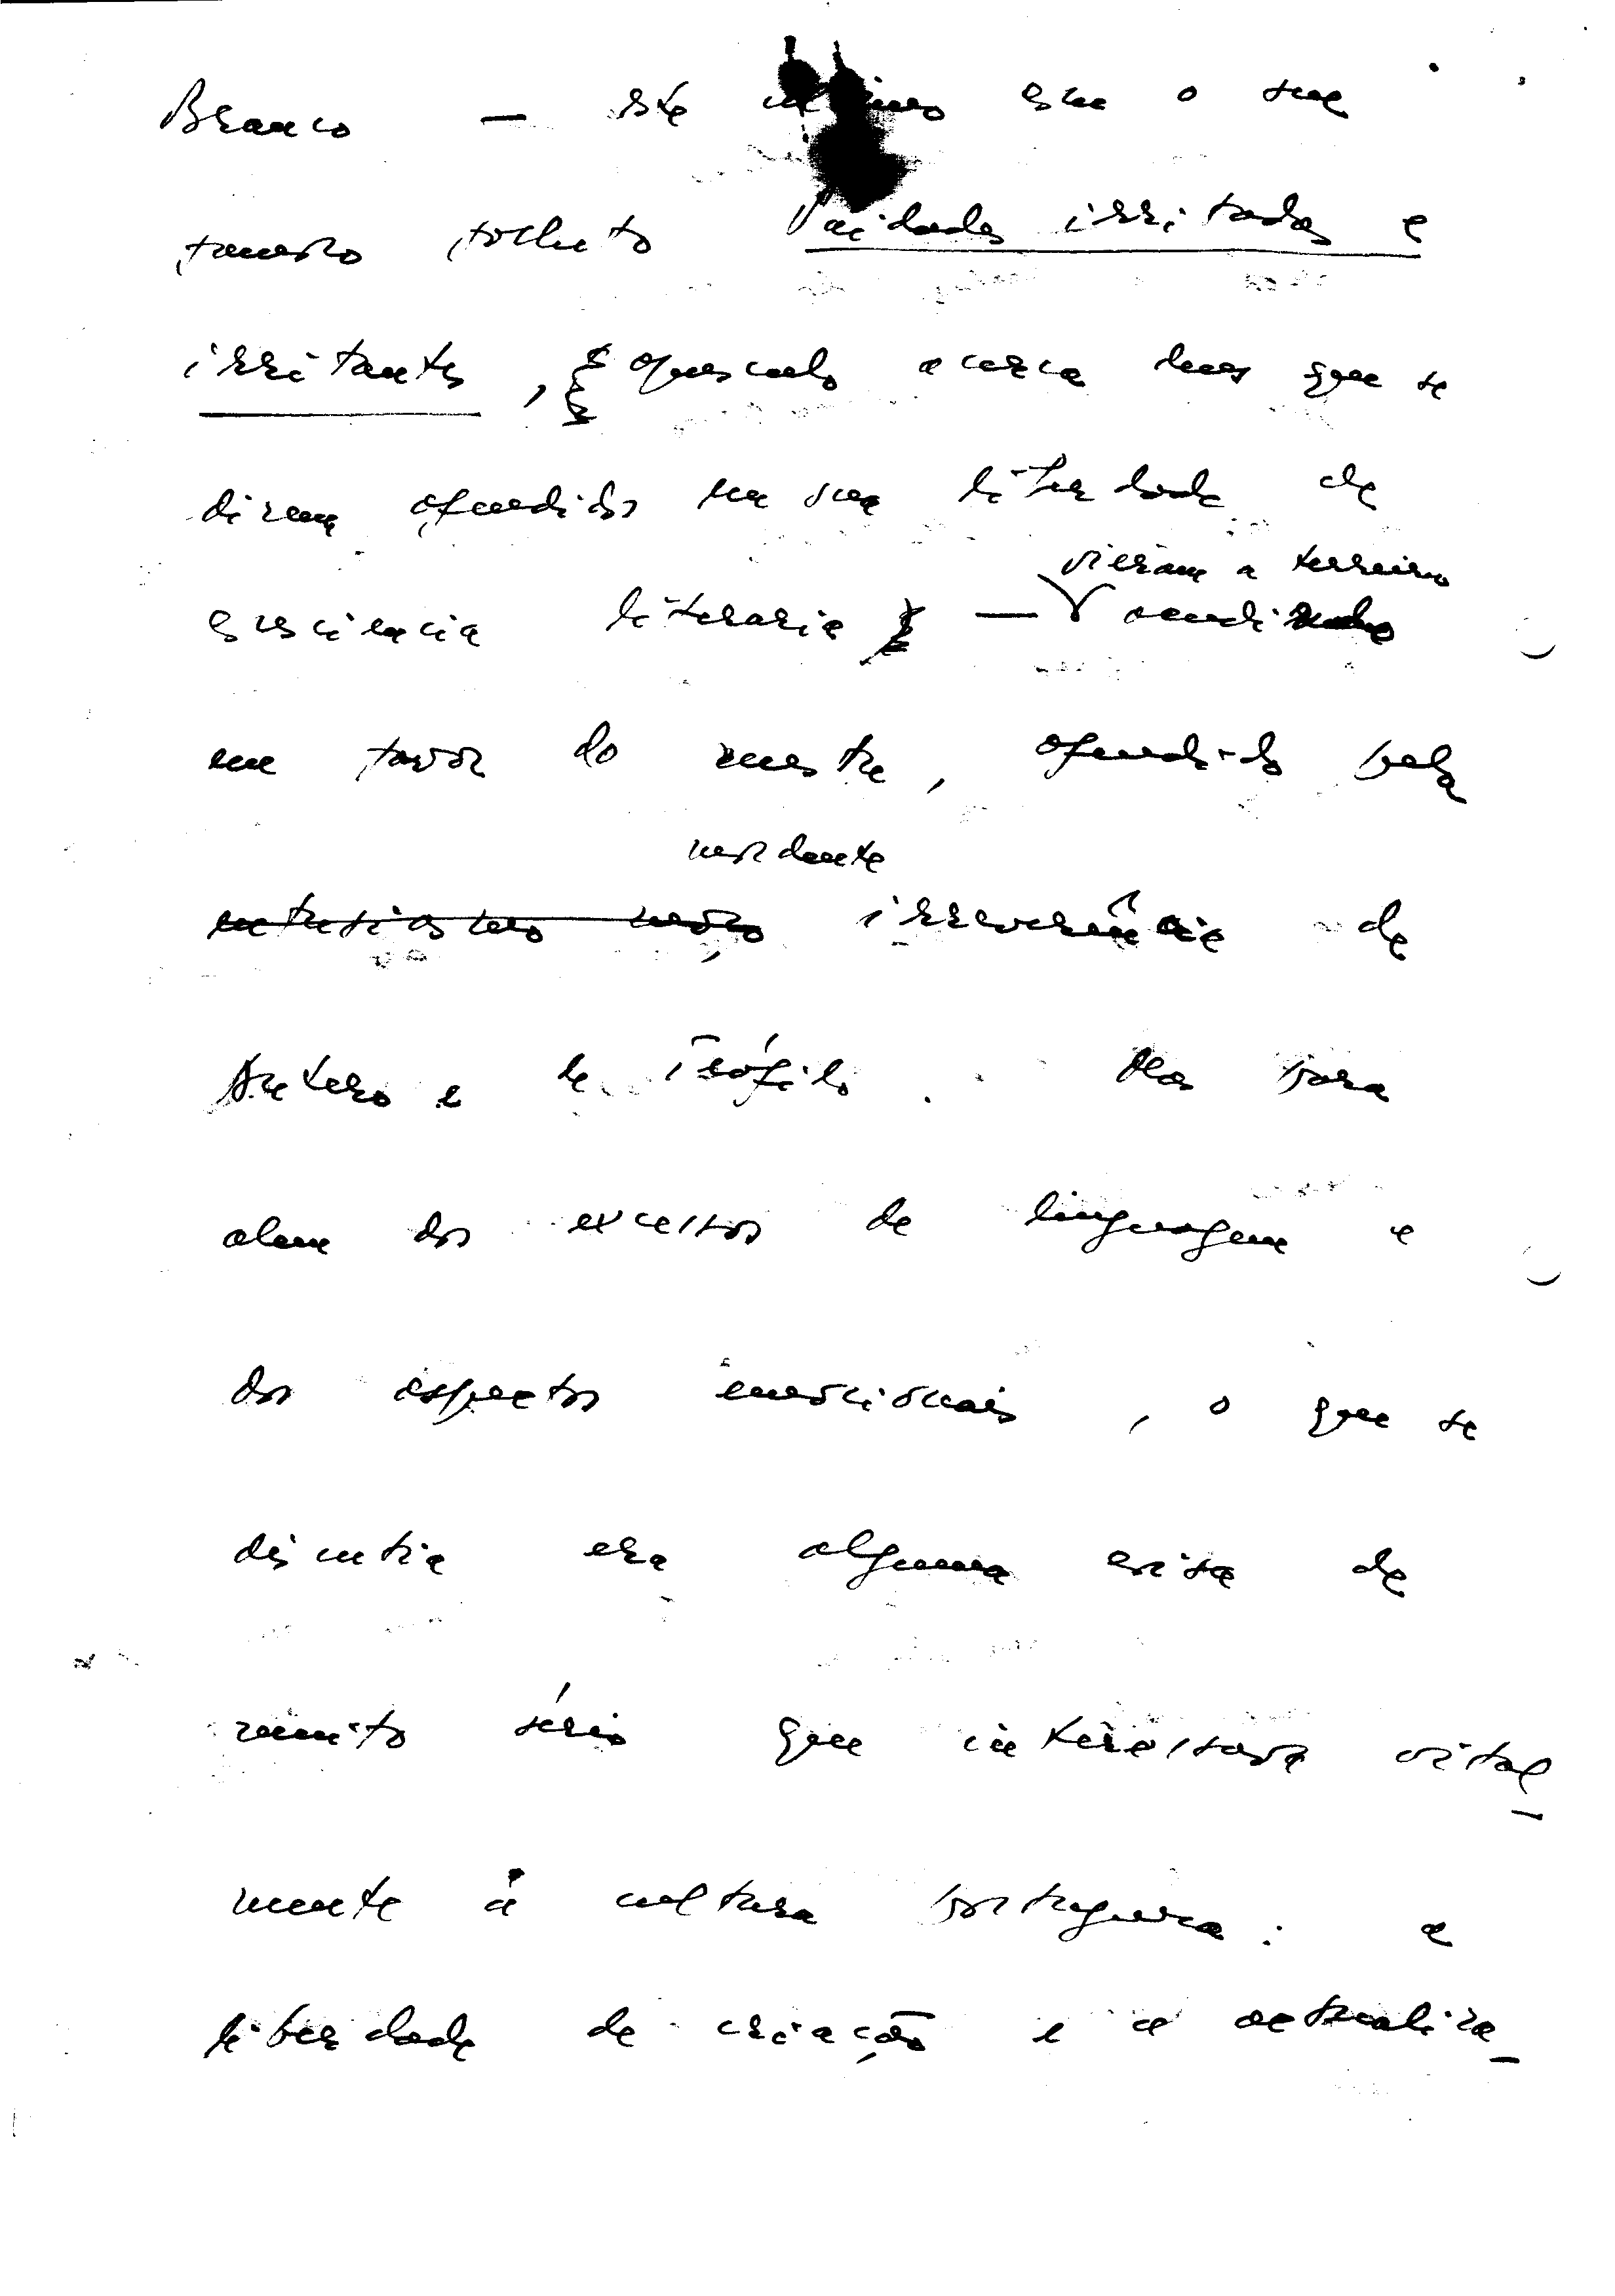 Branco — este último com o seu
famoso folheto Vaidades irritadas e
irritantes, opusculo acerca duns que se
dizem ofendidos na sua liberdade de
consciencia literaria — vieram a terreiro
em favor do mestre, ofendido pela
mordente
entusiasmo irreverência de
Antero e de Teófilo. Mas para
alem dos excessos de linguagem e
dos aspectos emocionais, o que se
discutia era alguma coisa de
muito sério que interessava vital-
mente á cultura portuguesa: a
liberdade de criação e a actualiza-